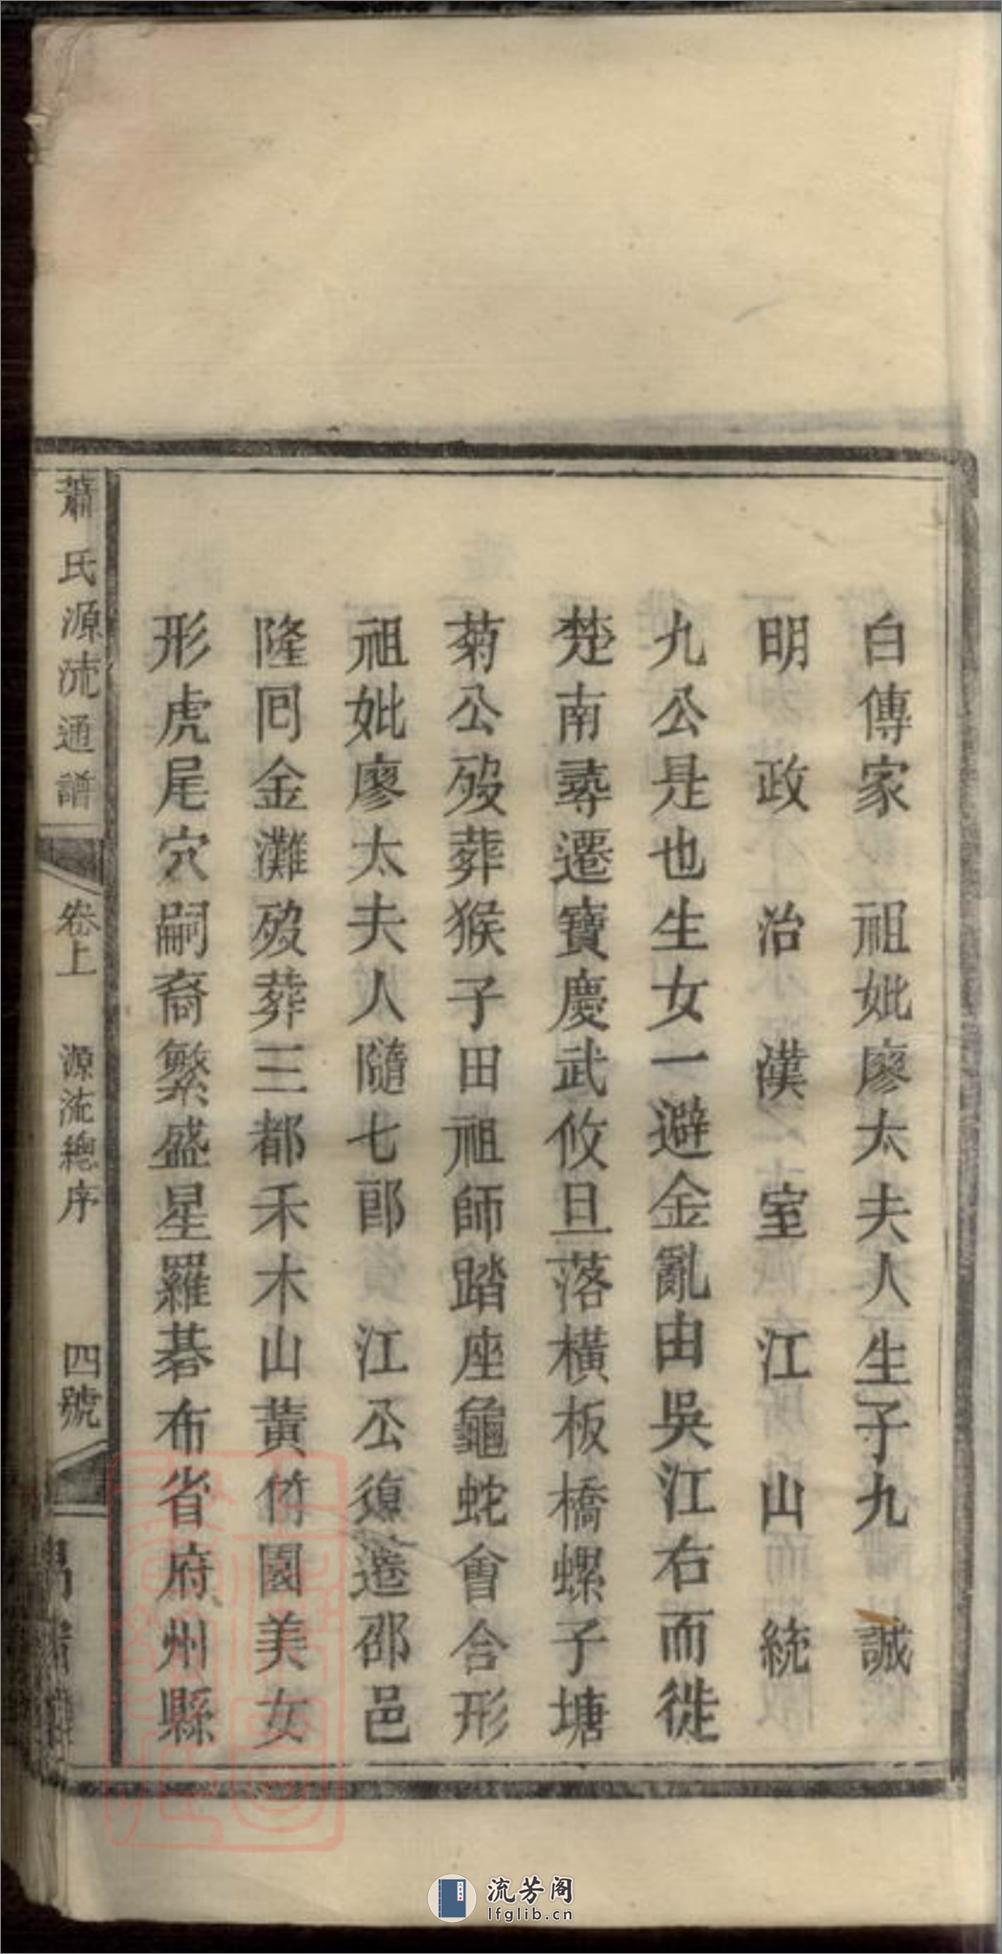 白傳家　祖妣廖太夫人生子九　誠
明　政　治　漢　室　江　山　統
九公是也生女一避金亂由吳江右而徙
楚南尋遷寶慶武攸旦落橫板橋螺子塘
菊公歿葬猴子田祖師踏座龜蛇會合形
祖妣廖太夫人隨七郎　江公復遷邵邑
隆囘金灘歿葬三都禾木山黃竹園美女
形虎尾穴嗣裔繁盛星羅碁布省府州縣
蕭氏源流通譜　卷上　源流總序　四號
流芳阁
lfglib.cn